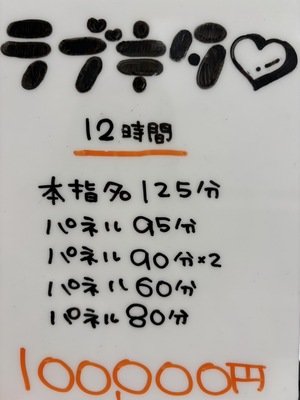 ラブキタ♡
12時間
本指名125分
パネル95分
パネル90分×2
パネル60分
パネル80分
100,000円